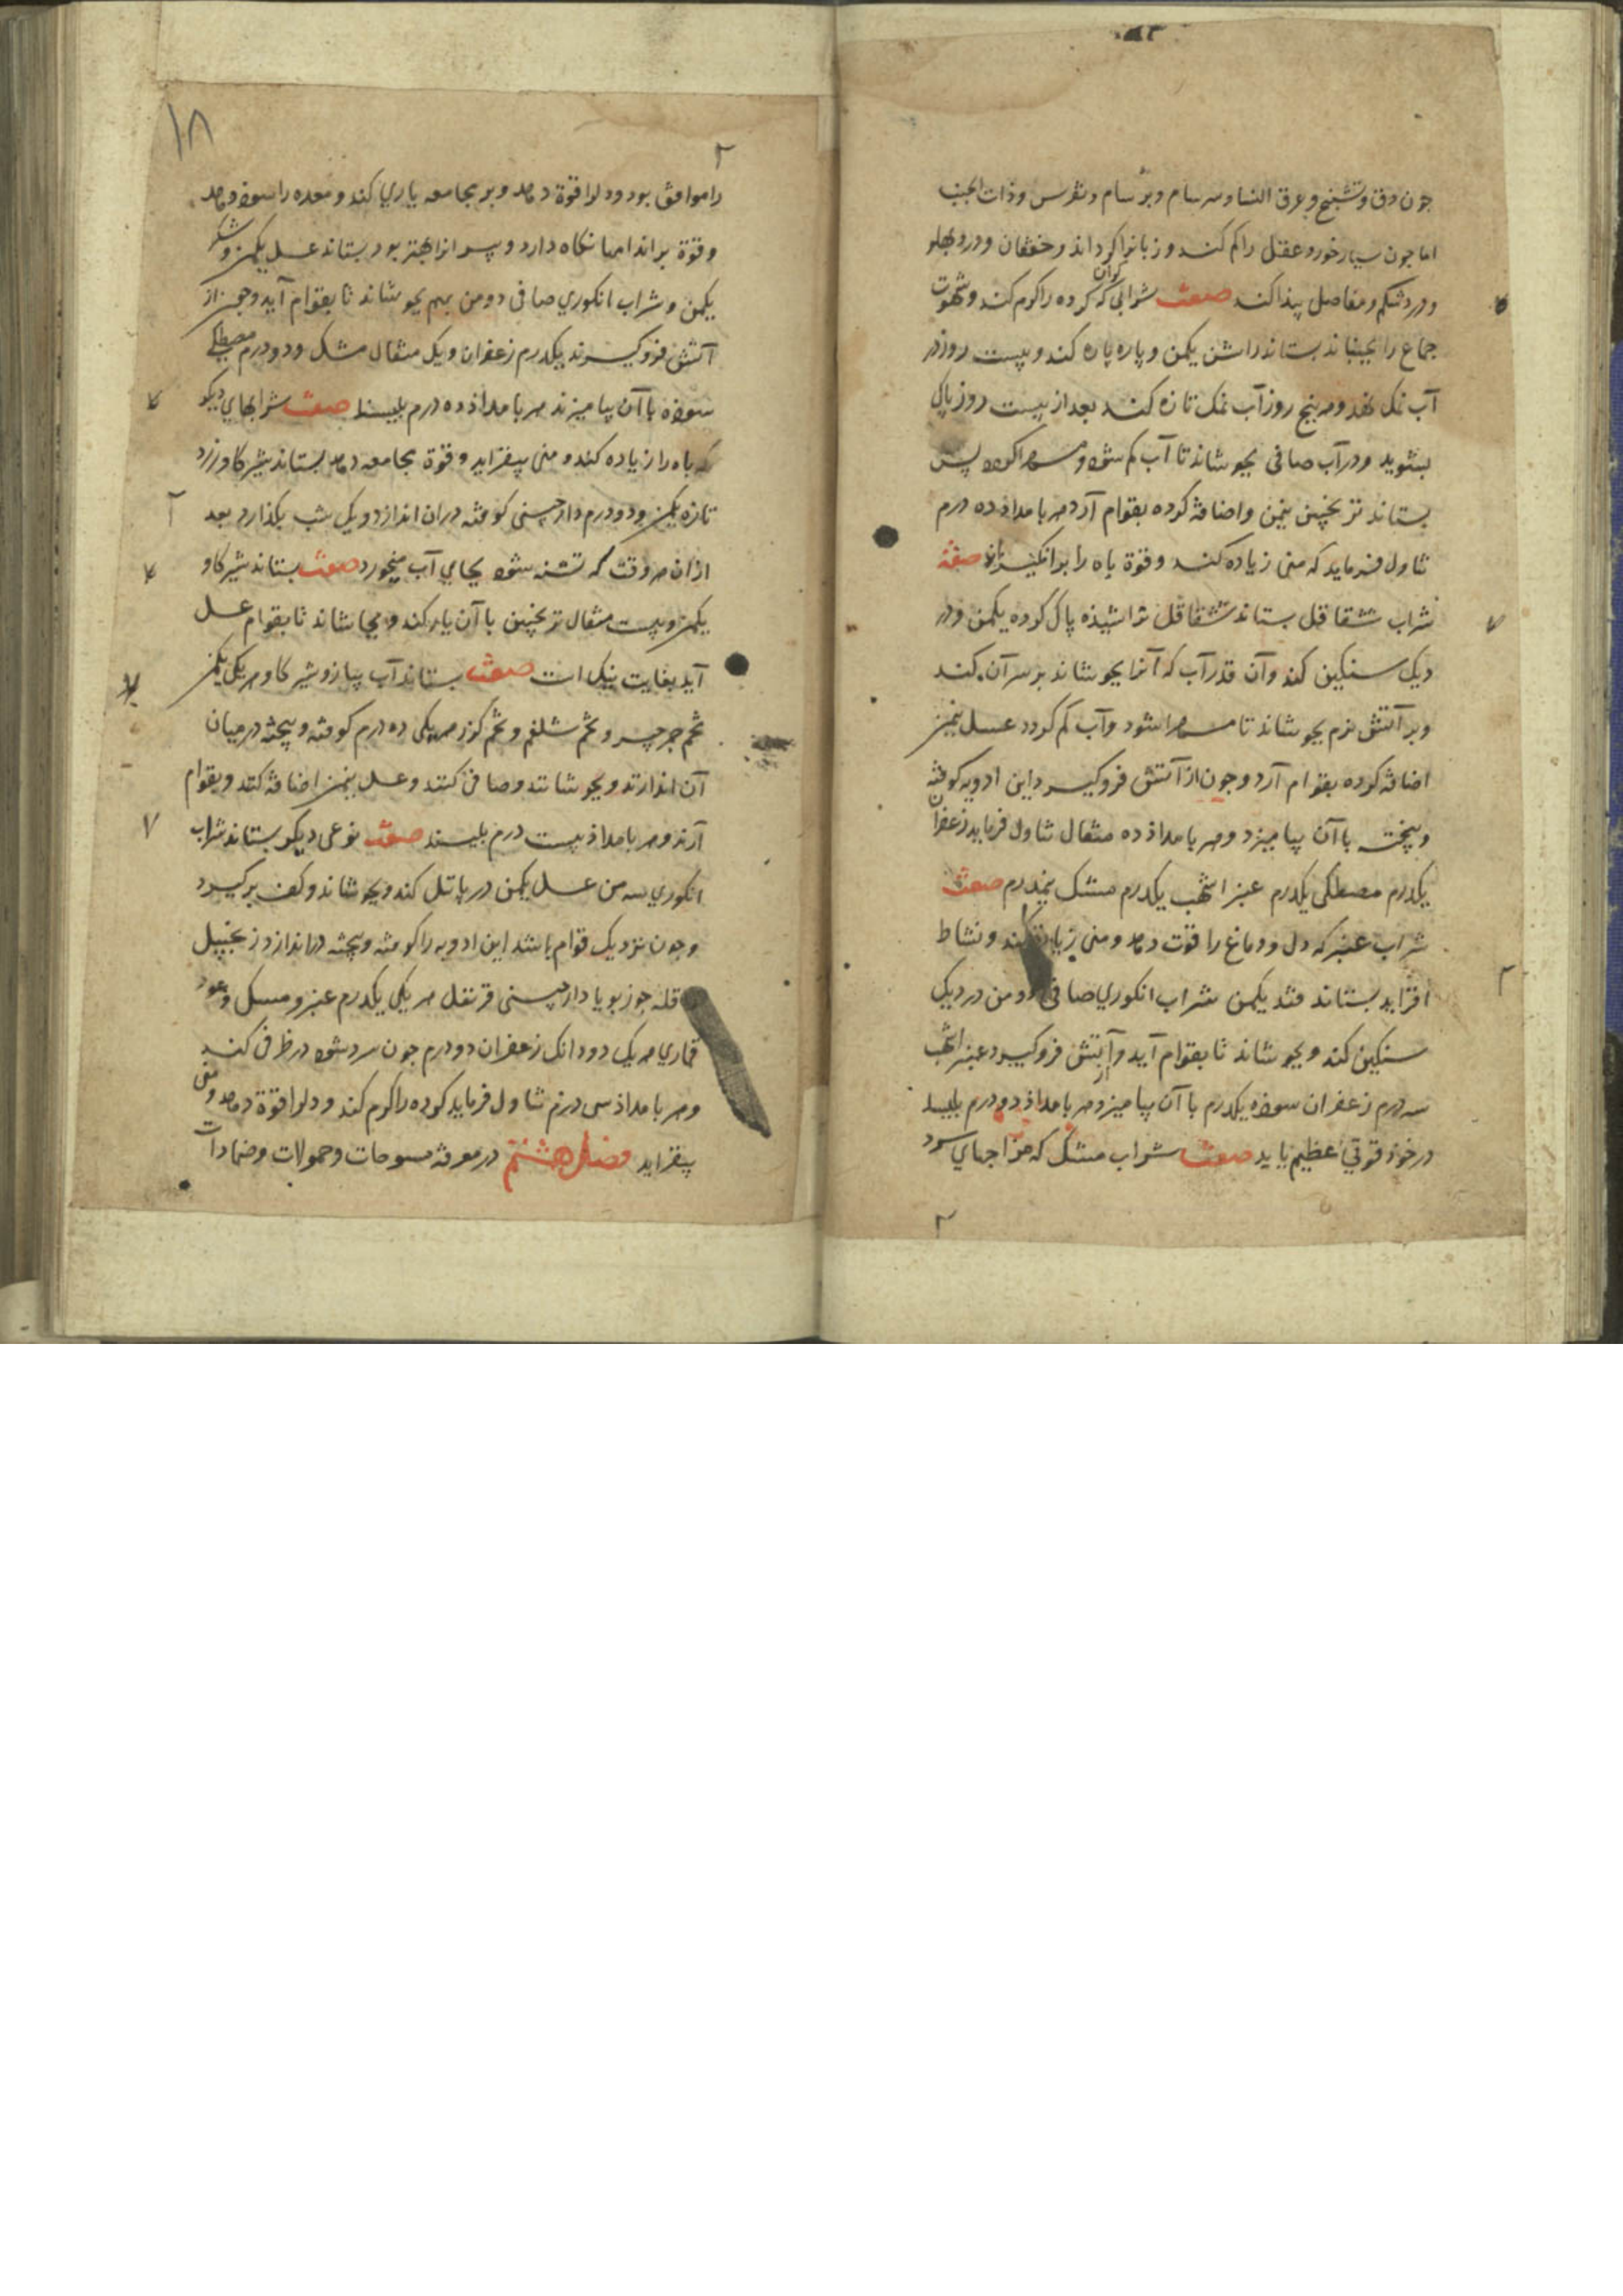 جون دق و تشنج و عرق النسا و سرسام و برسام و نقرس و ذات الجنب
اما جون بسیار خورد عقل را کم کند و زبانرا کران کرداند و خفقان و درد بهلو
و درد شکم و مفاصل پیدا کند صفت شرابی که کرده را کرم کند و شهوت
جماع را بجنباند بستاند راشن یکمن و پاره پاره کند و بیست روز در
آب نمک نهد و هر پنج روز آب نمک تازه کند بعد از بیست روز پاک
بشوید و در آب صافی بجوشاند تا آب کم شود و مهرا کردد پس
بستاند ترنجبین نیمن و اضافه کرده بقوام آرد هر بامداد ده درم
تناول فرماید که منی زیاده کند و قوة باه را برانکیزاند صفة
شراب شقاقل بستاند شقاقل تراشیده پاک کرده یکمن و در
دیک سنکین کند و آن قدر آب که آنرا بجوشاند بر سر آن کند
و بر آتش نرم بجوشاند تا مهرا شود و آب کم کردد عسل نیمن
اضافه کرده بقوام آرد و جون از آتش فرو کیرد این ادویه کوفته
و بیخته با آن بیامیزد و هر بامداد ده مثقال تناول فرماید زعفران
یکدرم مصطکی یکدرم عنبر اشهب یکدرم مشک نیمدرم صفت
شراب عنبر که دل و دماغ را قوت دهد و منی زیادت کند و نشاط
افزاید بستاند قند یکمن شراب انکوری صافی دو من در دیک
سنکین کند و بجوشاند تا بقوام آید و از آتش فرو کیرد عنبر اشهب
سه درم زعفران سوده یکدرم با آن بیامیزد هر بامداد دو درم بلیسد
در خود قوتی عظیم یابد صفت شراب مشک که مزاجهای سرد
۱۸
را موافق بود و دلرا قوة دهد و بر مجامعه یاری کند و معده را سود دهد
و قوة بر اندامها نکاه دارد و پیرانرا بهتر بود بستاند عسل یکمن و شکر
یکمن و شراب انکوری صافی دو من بهم بجوشاند تا بقوام آید و جون از
آتش فرو کیرند یکدرم زعفران و یک مثقال مشک و دو درم مصطکی
سوده با آن بیامیزند هر بامداد ده درم بلیسند صفت شرابهای دیکر
که باه را زیاده کند و منی بیفزاید و قوة مجامعه دهد بستاند شیر کاو زرد
تازه یکمن و دو درم دارچینی کوفته در آن اندازد و یک شب بکذارد بعد
از آن هر وقت که تشنه شود بجای آب میخورد صفت بستاند شیر کاو
یکمن و بیست مثقال ترنجبین با آن یار کند و بجوشاند تا بقوام عسل
آید بغایت نیک است صفت بستاند آب پیاز و شیر کاو هر یکی یکمن
تخم جرجیر و تخم شلغم و تخم کزر هر یکی ده درم کوفته و بیخته در میان
آن اندازند و بجوشانند و صافی کنند و عسل نیمن اضافه کنند و بقوام
آرند و هر بامداد بیست درم بلیسند صفت نوعی دیکر بستاند شراب
انکوری سه من عسل یکمن در پاتیل کند و بجوشاند و کف بر کیرد
و جون نزدیک قوام باشد این ادویه را کوفته و بیخته در اندازد زنجبیل
قاقله جوز بویا دارچینی قرنفل هر یکی یکدرم عنبر و مسک و عود
قماری هر یک دو دانک زعفران دو درم جون سرد شود در ظرفی کند
و هر بامداد سی درم تناول فرماید کرده را کرم کند و دلرا قوة دهد و منی
بیفزاید فصل هشتم در معرفه مسوحات و حمولات و ضمادات